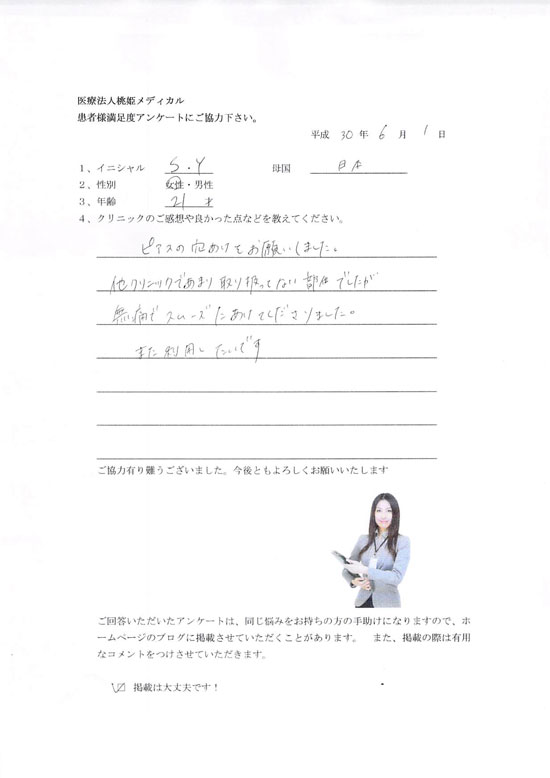 医療法人桃姫メディカル
患者様満足度アンケートにご協力下さい。
平成 30 年 6 月 1 日
1、イニシャル S.Y 母国 日本
2、性別 女性・男性
3、年齢 21 才
4、クリニックのご感想や良かった点などを教えてください。
ピアスの穴あけをお願いしました。
他クリニックであまり取り扱ってない部位でしたが
無痛でスムーズにあけてくださりました。
また利用したいです
ご協力有り難うございました。今後ともよろしくお願いいたします
ご回答いただいたアンケートは、同じ悩みをお持ちの方の手助けになりますので、ホ
ームページのブログに掲載させていただくことがあります。 また、掲載の際は有用
なコメントをつけさせていただきます。
☑ 掲載は大丈夫です！